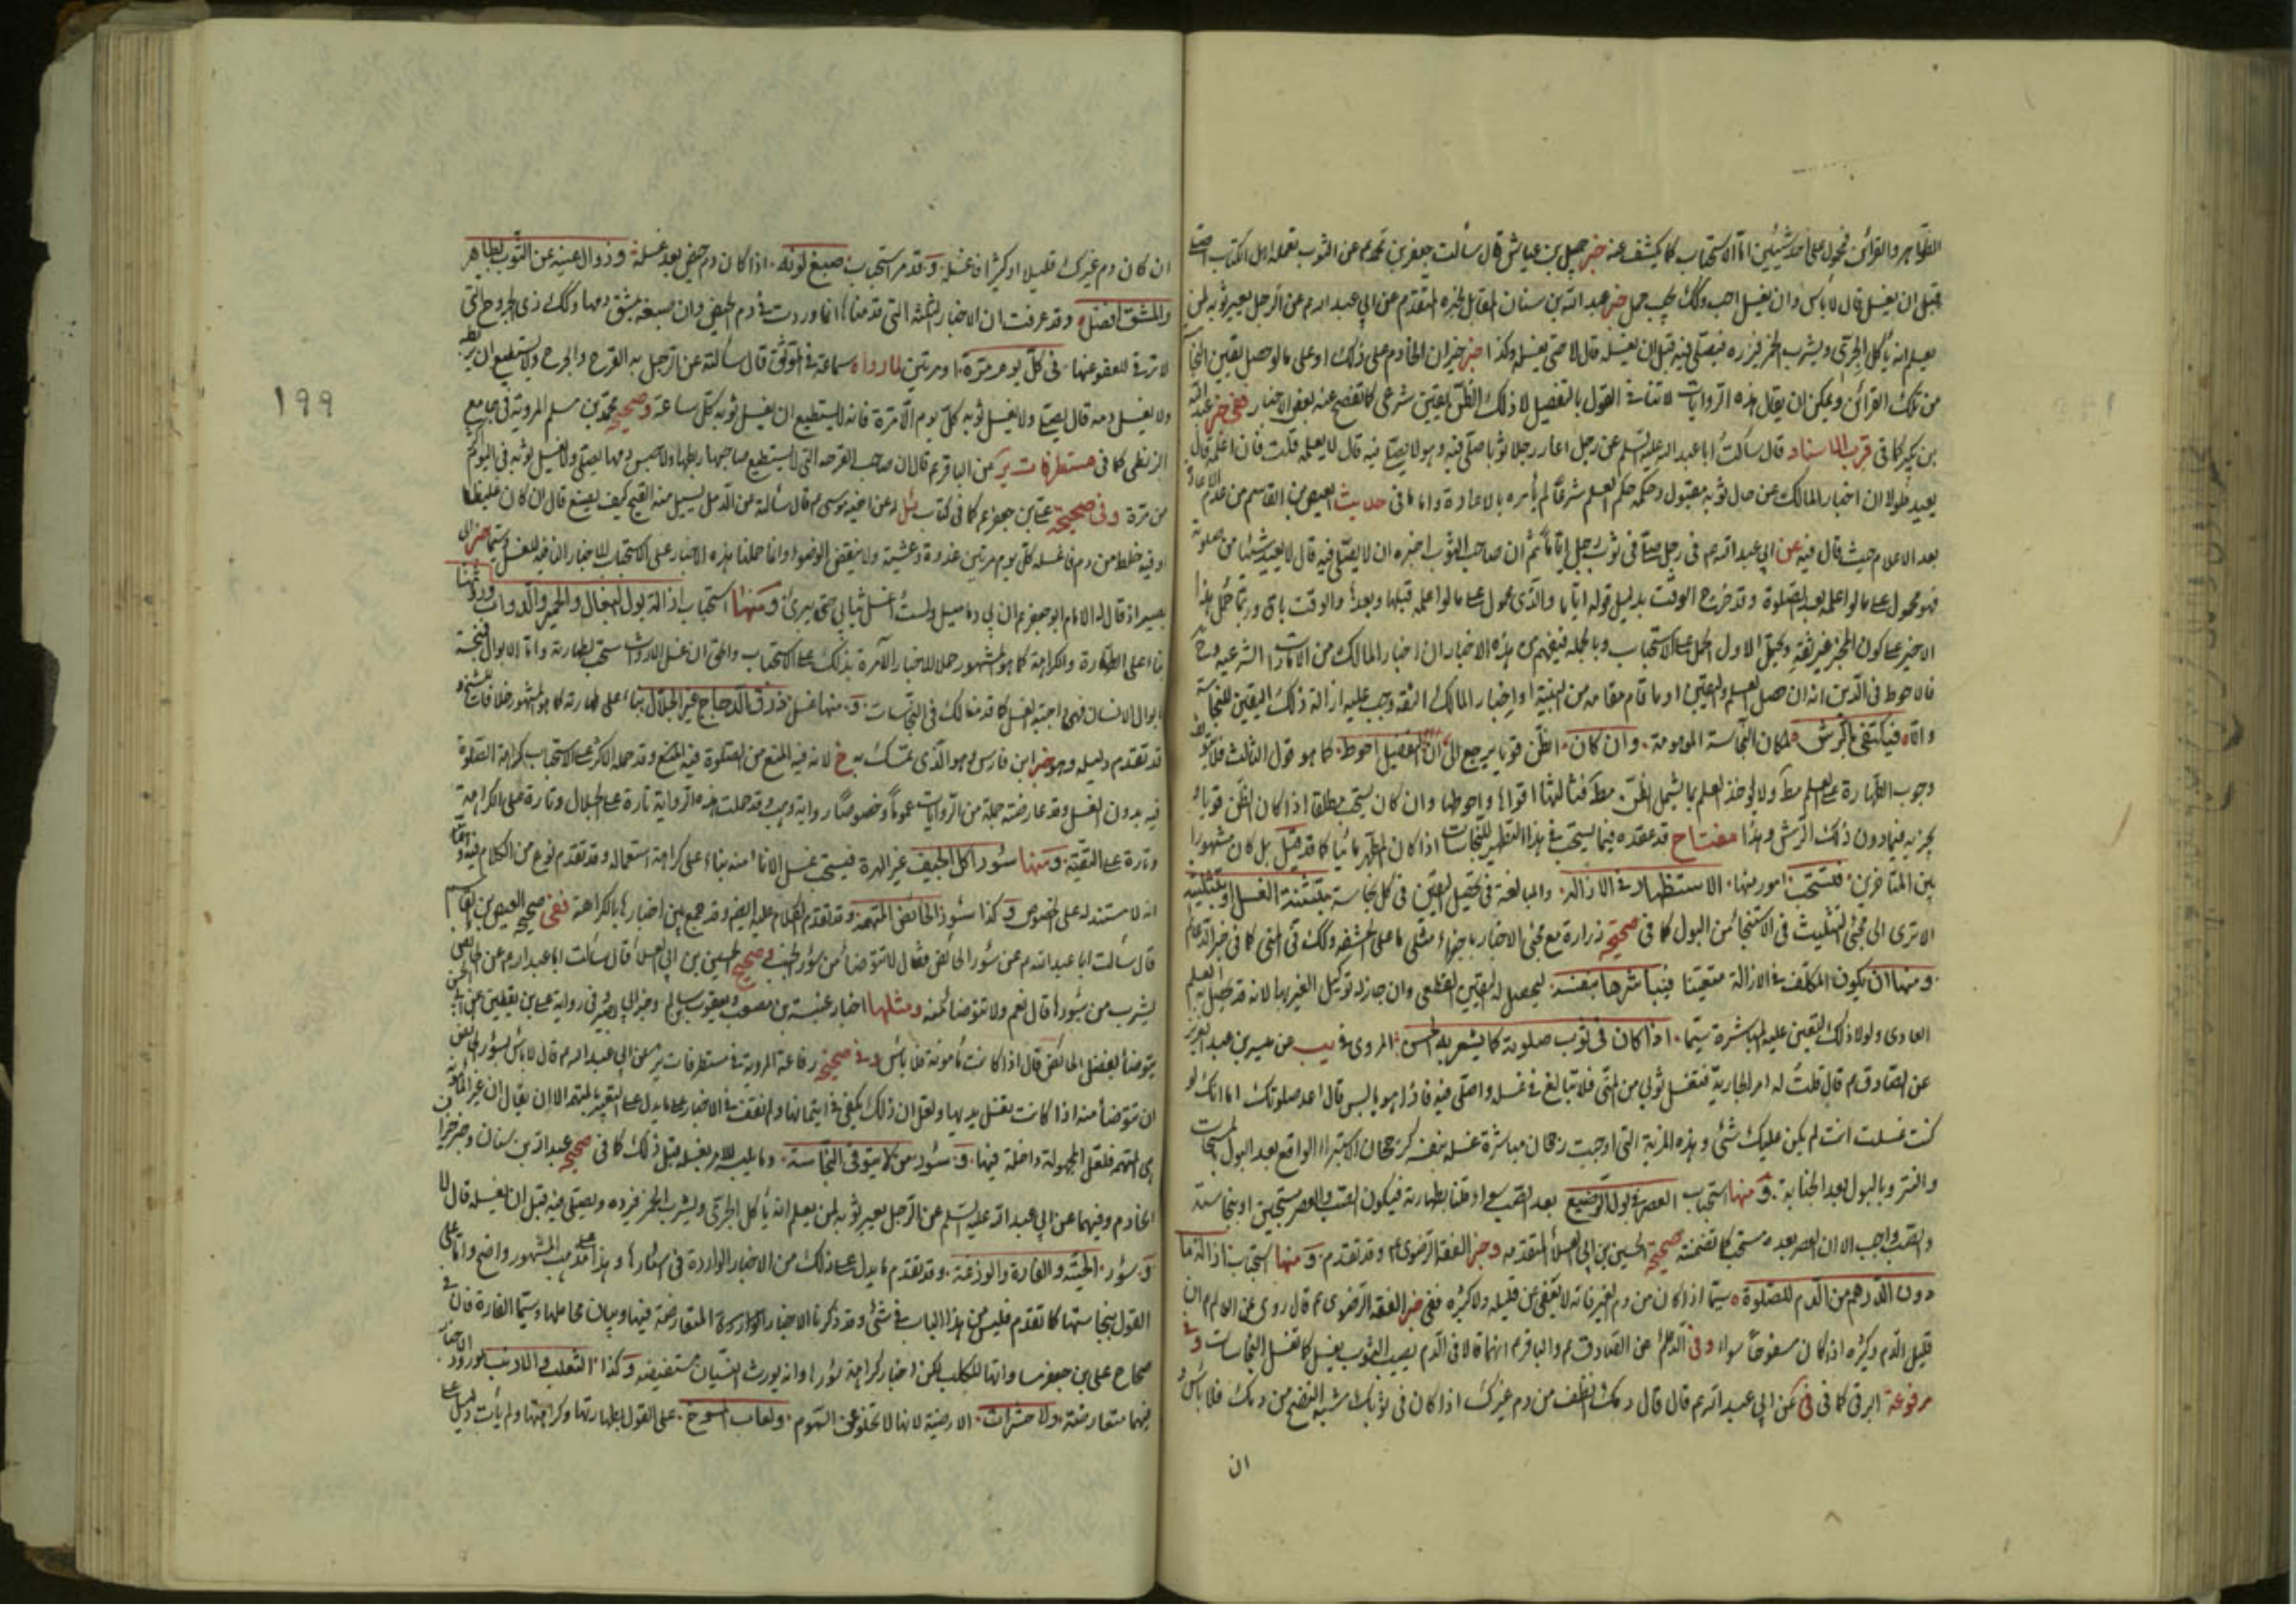 الظواهر والقرائن فمحمول على احد شيئين اما الاستحباب كما يكشف عنه خبر جميل بن عياش قال سألت جعفر بن محمد عم عن الثوب يعمله اهل الكتاب اصلي
قبل ان يغسل قال لا بأس وان يغسل احب وكك يجب حمل خبر عبد الله بن سنان المقابل لخبره المتقدم عن ابي عبد الله م عن الرجل يعير ثوبه لمن
يعلم انه يأكل الجري ويشرب الخمر فيرده فيصلي فيه قبل ان يغسله قال لا حتى يغسله وكذا خبر خيران الخادم على ذلك او على ما لو حصل يقين النجاسة
من تلك القرائن ويمكن ان يقال هذه الروايات لا تنافي القول بالتفصيل لان ذلك الظن يقين شرعي كما تفصح عنه بعض الاخبار ففي خبر عبد الله
بن بكير كما في قرب الاسناد قال سألت ابا عبد الله عليه السلم عن رجل اعار رجلا ثوبا فصلى فيه وهو لا يصلي فيه قال لا يعلمه قلت فان اعلمه قال
يعيد فلولا ان اخبار المالك عن حال ثوبه مقبول وحكمه حكم العلم شرعا لم يأمره بالاعادة واما ما في حديث العيص بن القاسم من عدم الاعادة
بعد الاعلام حيث قال فيه عن ابي عبد الله عم في رجل صلى في ثوب رجل اياما ثم ان صاحب الثوب اخبره ان لا يصلي فيه قال لا يعيد شيئا من صلوته
فهو محمول على ما لو اعلمه بعد الصلوة وقد خرج الوقت بدليل قوله اياما والذي محمول على ما لو اعلمه قبلها وبعدا والوقت باق وربما حمل هذا
الاخير على كون المخبر غير ثقة ويحتمل الاول الحمل على الاستحباب وبالجملة فيفهم من هذه الاخبار ان اخبار المالك من الامارات الشرعية
فالاحوط في الدين انه ان حصل العلم واليقين او ما قام مقامه من البينة او اخبار المالك الثقة وجب عليه ازالة ذلك اليقين للنجاسة
والا فيكتفى بالرش لمكان النجاسة الموهومة وان كان الظن قويا يرجع الى ان التفصيل احوط كما هو قول الثالث
وجوب الطهارة على العلم مط ولا يؤخذ العلم بما يشمل الظن مط فثالثها اقواها واحوطها وان كان يستحب مطلقا اذا كان الظن قويا و
يجزيه فيما دون ذلك الرش وهذا مفتاح قد عقده فيما يستحب في هذا التطهير للنجاسات اذا كان المطهر مائيا كما قد قيل بل كان مشهورا
بين المتأخرين فيستحب امور منها الاستظهار في الازالة والمبالغة في تحصيل اليقين في كل نجاسة بتثنية الغسل او بتثليثه
الا ترى الى مجيئ التثليث في الاستنجاء من البول كما في صحيح زرارة مع مجئ الاخبار باجزاء مثلي ما على الحشفة وكك في المني كما في خبر
ومنها ان يكون المكلف في الازالة متيقنا فيباشرها بنفسه ليحصل له اليقين القطعي وان جاز له توكيل الغير بها لانه قد يحصل به العلم
العادي ولولا ذلك اليقين عليه المباشرة سيما اذا كان في ثوب صلوته كما يشعر به الحسن المروي في يب عن ميسر بن عبد العزيز
عن الصادق م قال قلت له امر الجارية فتغسل ثوبي من المني فلا تبالغ في غسله واصلي فيه فاذا هو يابس قال اعد صلوتك اما انك لو
كنت غسلت انت لم يكن عليك شئ وهذه المزية التي اوجبت رجحان مباشرة غسله بنفسه كرجحان الاستبراء الواقع بعد البول
والنتر وبالبول بعد الجنابة و منها استحباب العصر في بول الرضيع بعد الصب سواء قلنا بطهارته فيكون الصب والعصر مستحبين او بنجاسته
والصب واجب الا ان العصر بعده مستحب كما تضمنته صحيحة الحسين بن ابي العلاء المتقدمه وخبر الفقه الرضوي وقد تقدم و منها استحباب ازالة ما
دون الدرهم من الدم للصلوة سيما اذا كان من دم الغير فانه لا يعفى عن قليله ولا كثيره ففي خبر الفقه الرضوي عم قال روى عن العالم م ان
قليل الدم وكثيره اذا كان مسفوحا سواء وفي الدعائم عن الصادق م والباقر م انهما قالا في الدم يصيب الثوب يغسل كما تغسل النجاسات وفي
مرفوعة البرقي كما في في عن ابي عبد الله عم قال قال دمك انظف من دم غيرك اذا كان في ثوبك شبه النضح من دمك فلا بأس و
ان
ان كان دم غيرك قليلا او كثيرا فاغسله و قد مر استحباب صبغ لونه اذا كان دم حيض بعد غسله وزوال عينه عن الثوب بطاهر
والمشق افضل وقد عرفت ان الاخبار الثلثه التي قدمناها انما وردت في دم الحيض وان صبغه بمشق ومنها وكك ذي الجروح التي
لا ترقى للعفو عنها في كل يوم مرة او مرتين لما رواه سماعة في الموثق قال سألته عن الرجل به القرح والجرح ولا يستطيع ان يربطه
ولا يغسل دمه قال يصلي ولا يغسل ثوبه كل يوم الا مرة فانه لا يستطيع ان يغسل ثوبه كل ساعة وصحيح محمد بن مسلم المروية في جامع
البزنطي كما في مستطرفات ئر عن الباقر عم قال ان صاحب القرحة التي لا يستطيع صاحبها ربطها ولا حبس دمها يصلي ولا يغسل ثوبه في اليوم اكثر
من مرة وفي صحيحة علي بن جعفر عم كما في كتاب ئل له عن اخيه موسى م قال سألته عن الدمل يسيل منه القيح كيف يصنع قال ان كان غليظا
او فيه خلط من دم فاغسله كل يوم مرتين غدوة وعشية ولا ينقض الوضوء وانما حملنا هذه الاخبار على الاستحباب للاخبار النافية للغسل سيما خبر ابي
بصير اذ قال له الامام ابو جعفر عم ان بي دماميل ولست اغسل ثيابي حتى تبرئ و منها استحباب ازالة بول البغال والحمير والدواب وروثها
بناء على الطهارة والكراهة كما هو المشهور حملا للاخبار الآمرة بذلك على الاستحباب واعلم ان غسل الارواث مستحب لطهارته واما الابوال فنجسة
ابوال الانسان فهي واجبة الغسل كما قدمنا لك في النجاسات و منها غسل ذرق الدجاج غير الجلال بناء على طهارته كما هو المشهور خلافا للشيخ و
قد تقدم دليله وهو خبر ابن فارس وهو الذي تمسك به خ لانه فيه المنع من الصلوة فيه المنع وقد حمله الاكثر على الاستحباب كراهة الصلوة
فيه بدون الغسل وقد عارضته جملة من الروايات عموما وخصوصا رواية وهب وقد حملت هذه الرواية تارة على الجلال وتارة على الكراهة
وتارة على التقية و منها سؤر اكل الجيف غير الهرة فيستحب غسل الاناء منه بناء على كراهة استعماله وقد تقدم نوع من الكلام فيه
انه لا مستند له على الخصوص و كذا سؤر الحائض المتهمة وقد تقدم الكلام عليه ايض وقد جمع بين اخبارها بالكراهة ففي صحيح العيص بن القاسم
قال سألت ابا عبد الله م عن سؤر الحائض فقال لا تتوضأ من سؤر الحائض وصحيح الحسين بن ابي العلاء قال سألت ابا عبد الله م عن الحائض
يشرب من سؤرها قال نعم ولا تتوضأ منه ومثلها اخبار عنبسة بن مصعب ويعقوب بن سالم وخبر ابي بصير وفي رواية علي بن يقطين عن ابي الحسن
يتوضأ بفضل الحائض قال اذا كانت مأمونة فلا بأس و في صحيح رفاعة المروية في مستطرفات ئر عن ابي عبد الله م قال لا بأس بسؤر الحائض
ان تتوضأ منه اذا كانت تغسل يديها ولعل ان ذلك يكفي في ايتمانها ولم نقف في الاخبار على ما يدل على التعبير بالمتهمة الا ان يقال ان غير المأمونة
هي المتهمة فلعل المجهولة داخلة فيها و سؤر من لا يتوقى النجاسة وما يلبسه لامر بغسله قبل ذلك كما في صحيح عبد الله بن سنان وخبر خيران
الخادم وفيهما عن ابي عبد الله عليه السلم عن الرجل يعير ثوبه لمن يعلم انه يأكل الجري ويشرب الخمر فيرده ويصلي فيه قبل ان يغسله قال لا
و سؤر الحية والفارة والوزغة وقد تقدم ما يدل على ذلك من الاخبار الواردة في اسئارها وهذا على مذهب المشهور واضح واما على
القول بنجاستها كما تقدم فليس من هذا الباب في شئ وقد ذكرنا الاخبار الواردة المتعارضة فيها وبيان محاملها وسيما الفارة فان في
صحاح علي بن جعفر مساواتها للكلب لكن اخبار كراهة سؤرها وانه يورث النسيان مستفيضة و كذا الثعلب والارنب لورود الاخبار
فيهما متعارضة ولا حشرات الارضية لانها لا تخلو عن السموم ولعاب المسوخ على القول بطهارتها وكراهتها ولم يأت دليل على
١٩٩